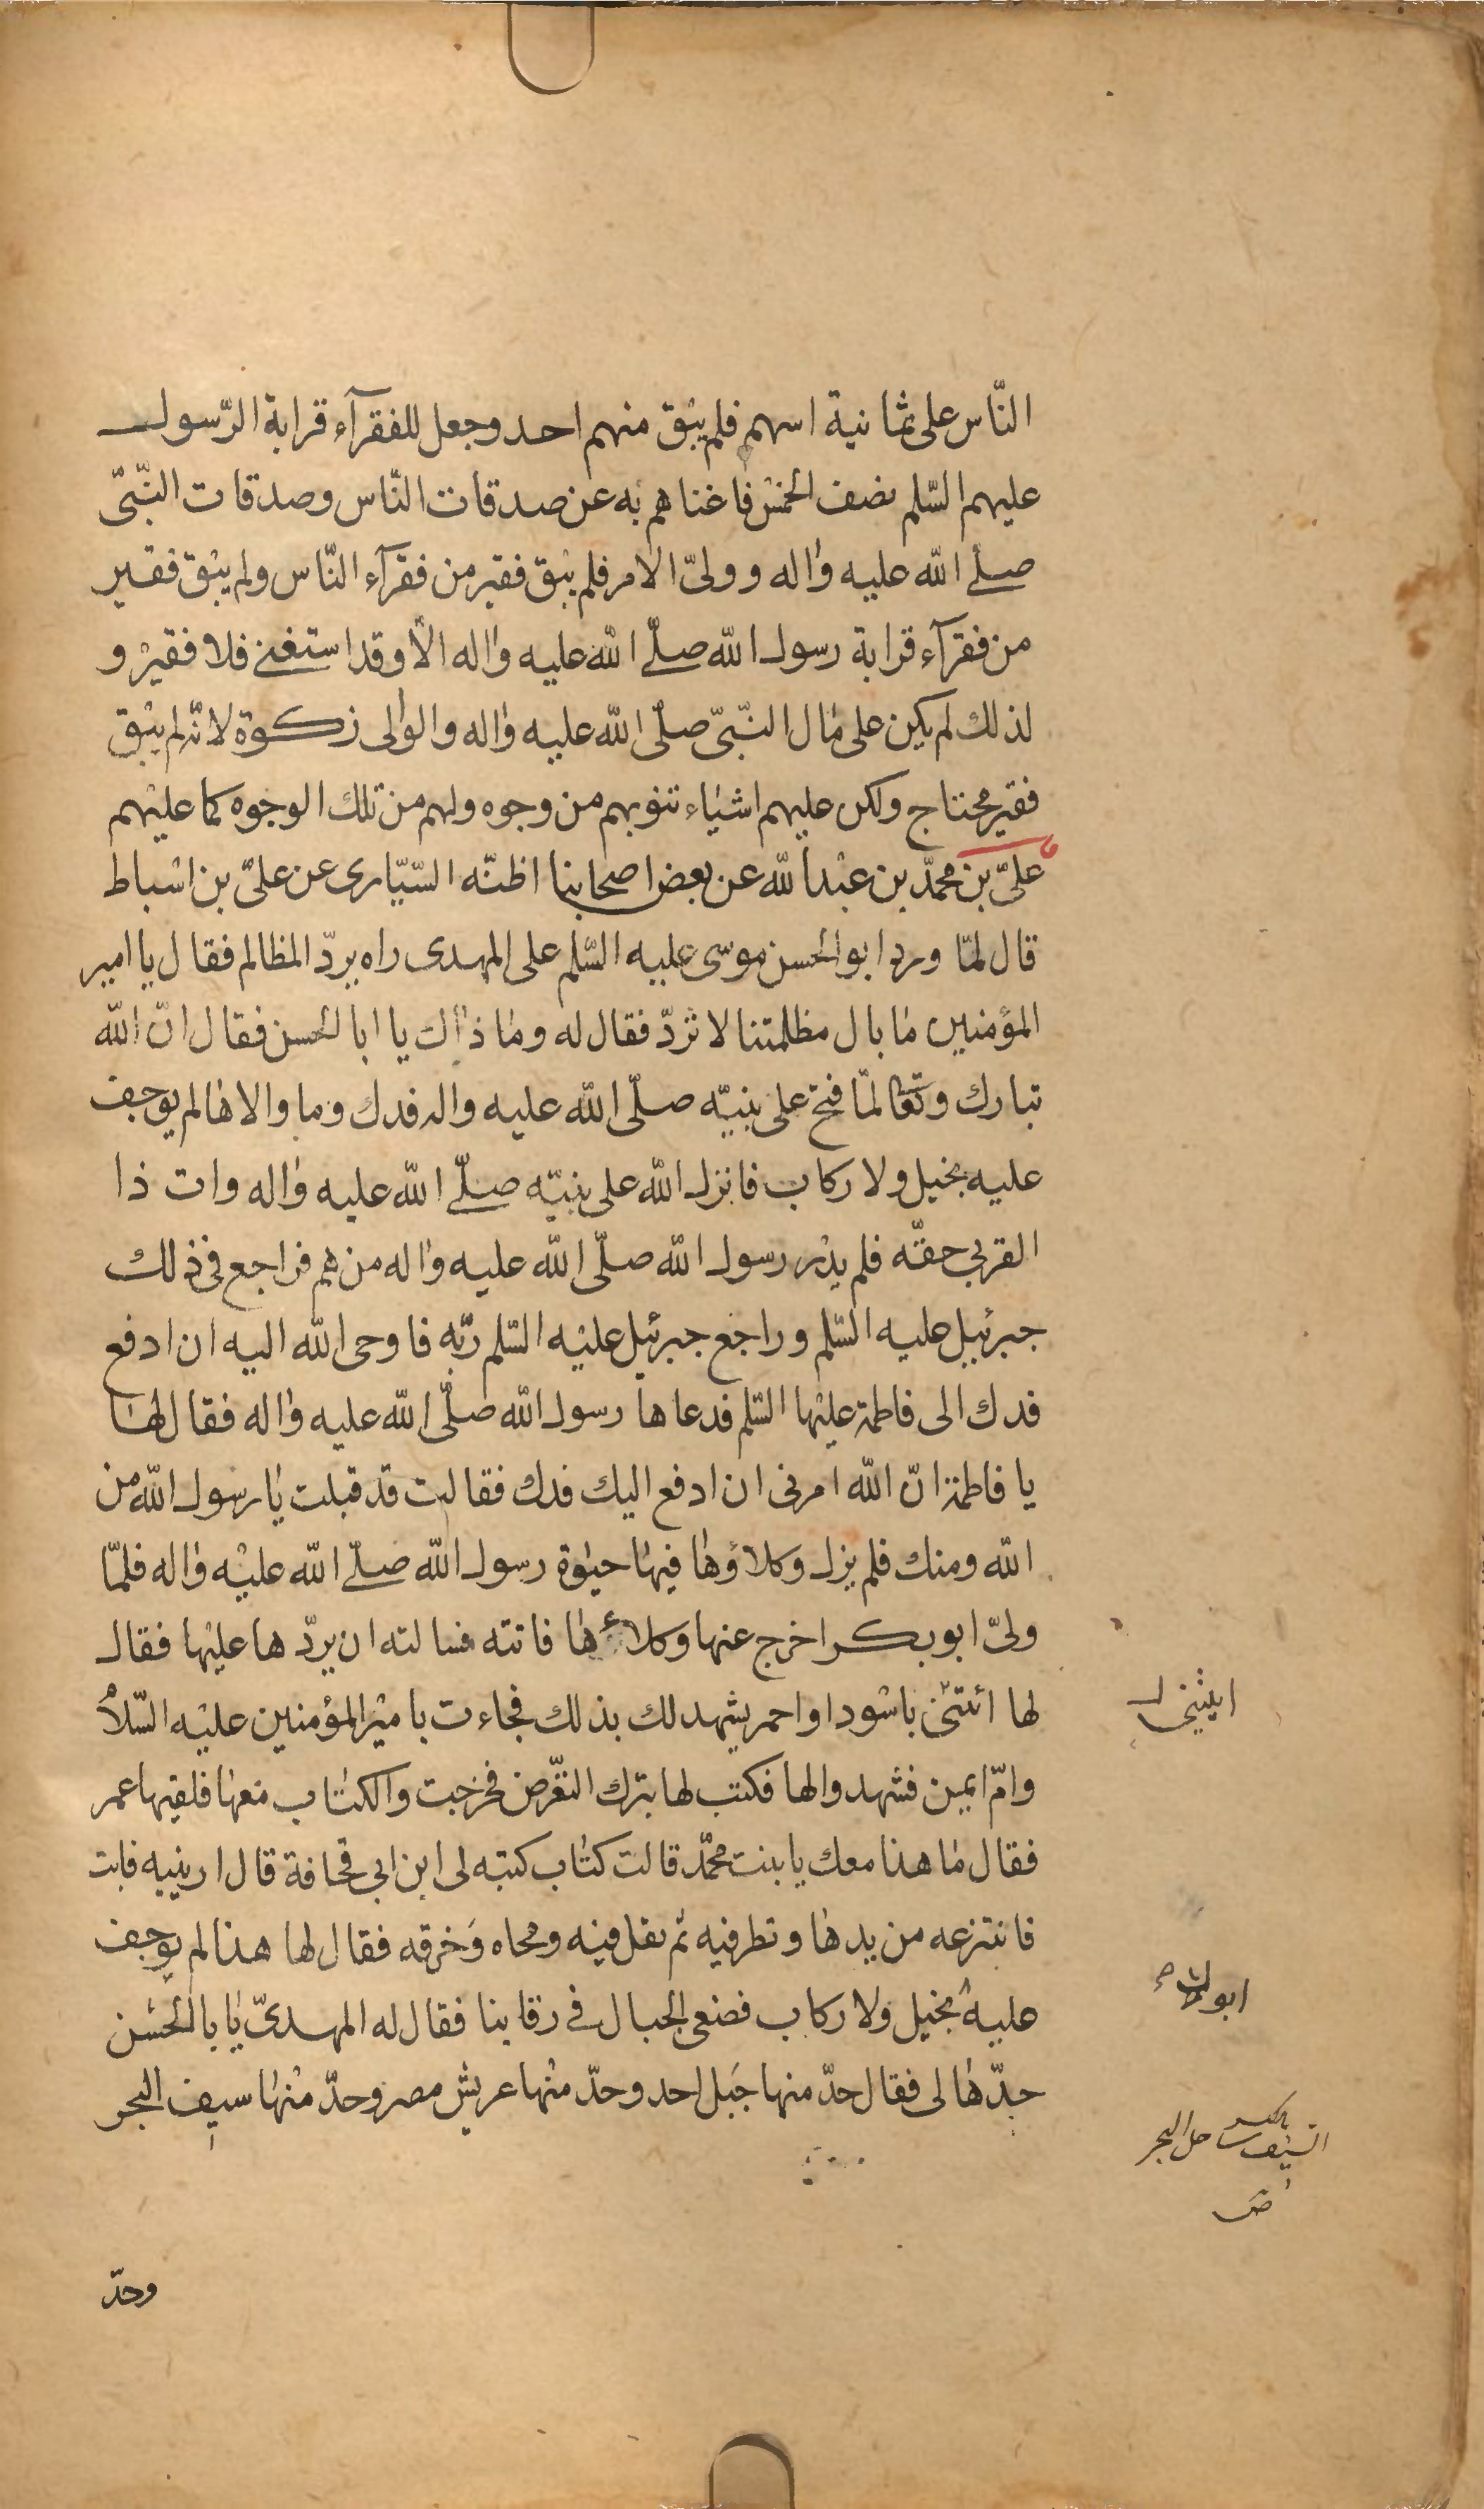 النّاس على ثمانية اسهم فلم يبق منهم احد وجعل للفقرآء قرابة الرّسول
عليهم السّلم نصف الخمس فاغناهم به عن صدقات النّاس وصدقات النّبىّ
صلّى اللّه عليه واله وولىّ الامر فلم يبق فقير من فقرآء النّاس ولم يبق فقير
من فقرآء قرابة رسول اللّه صلّى اللّه عليه واله الّا وقد استغنى فلا فقير و
لذلك لم يكن على مال النّبىّ صلّى اللّه عليه واله والوالى زكوة لانّه لم يبق
فقير محتاج ولكن عليهم اشياء تنوبهم من وجوه ولهم من تلك الوجوه كما عليهم
علىّ بن محمّد بن عبد اللّه عن بعض اصحابنا اظنّه السّيّارى عن علىّ بن اسباط
قال لمّا ورد ابو الحسن موسى عليه السّلم على المهدى راه يردّ المظالم فقال يا امير
المؤمنين ما بال مظلمتنا لا تردّ فقال له وما ذاك يا ابا الحسن فقال انّ اللّه
تبارك وتعالى لمّا فتح على نبيّه صلّى اللّه عليه واله فدك وما والاها لم يوجف
عليه بخيل ولا ركاب فانزل اللّه على نبيّه صلّى اللّه عليه واله وات ذا
القربى حقّه فلم يدر رسول اللّه صلّى اللّه عليه واله من هم فراجع فى ذلك
جبرئيل عليه السّلم وراجع جبرئيل عليه السّلم ربّه فاوحى اللّه اليه ان ادفع
فدك الى فاطمة عليها السّلم فدعاها رسول اللّه صلّى اللّه عليه واله فقال لها
يا فاطمة انّ اللّه امرنى ان ادفع اليك فدك فقالت قد قبلت يا رسول اللّه من
اللّه ومنك فلم يزل وكلاؤها فيها حيوة رسول اللّه صلّى اللّه عليه واله فلمّا
ولىّ ابو بكر اخرج عنها وكلاءها فاتته فسالته ان يردّها عليها فقال
لها ائتنى باسود او احمر يشهد لك بذلك فجاءت بامير المؤمنين عليه السّلام
وامّ ايمن فشهدوا لها فكتب لها بترك التّعرّض فخرجت والكتاب معها فلقيها عمر
فقال ما هذا معك يا بنت محمّد قالت كتاب كتبه لى ابن ابى قحافة قال ارينيه فابت
فانتزعه من يدها ونظر فيه ثم تفل فيه ومحاه وخرقه فقال لها هذا لم يوجف
عليه بخيل ولا ركاب فضعى الجبال فى رقابنا فقال له المهدىّ يا با الحسن
حدّها لى فقال حدّ منها جبل احد وحدّ منها عريش مصر وحدّ منها سيف البحر
ايتينى ل
ابوك
السّيف بالكسر ساحل البحر
ص
وحدّ